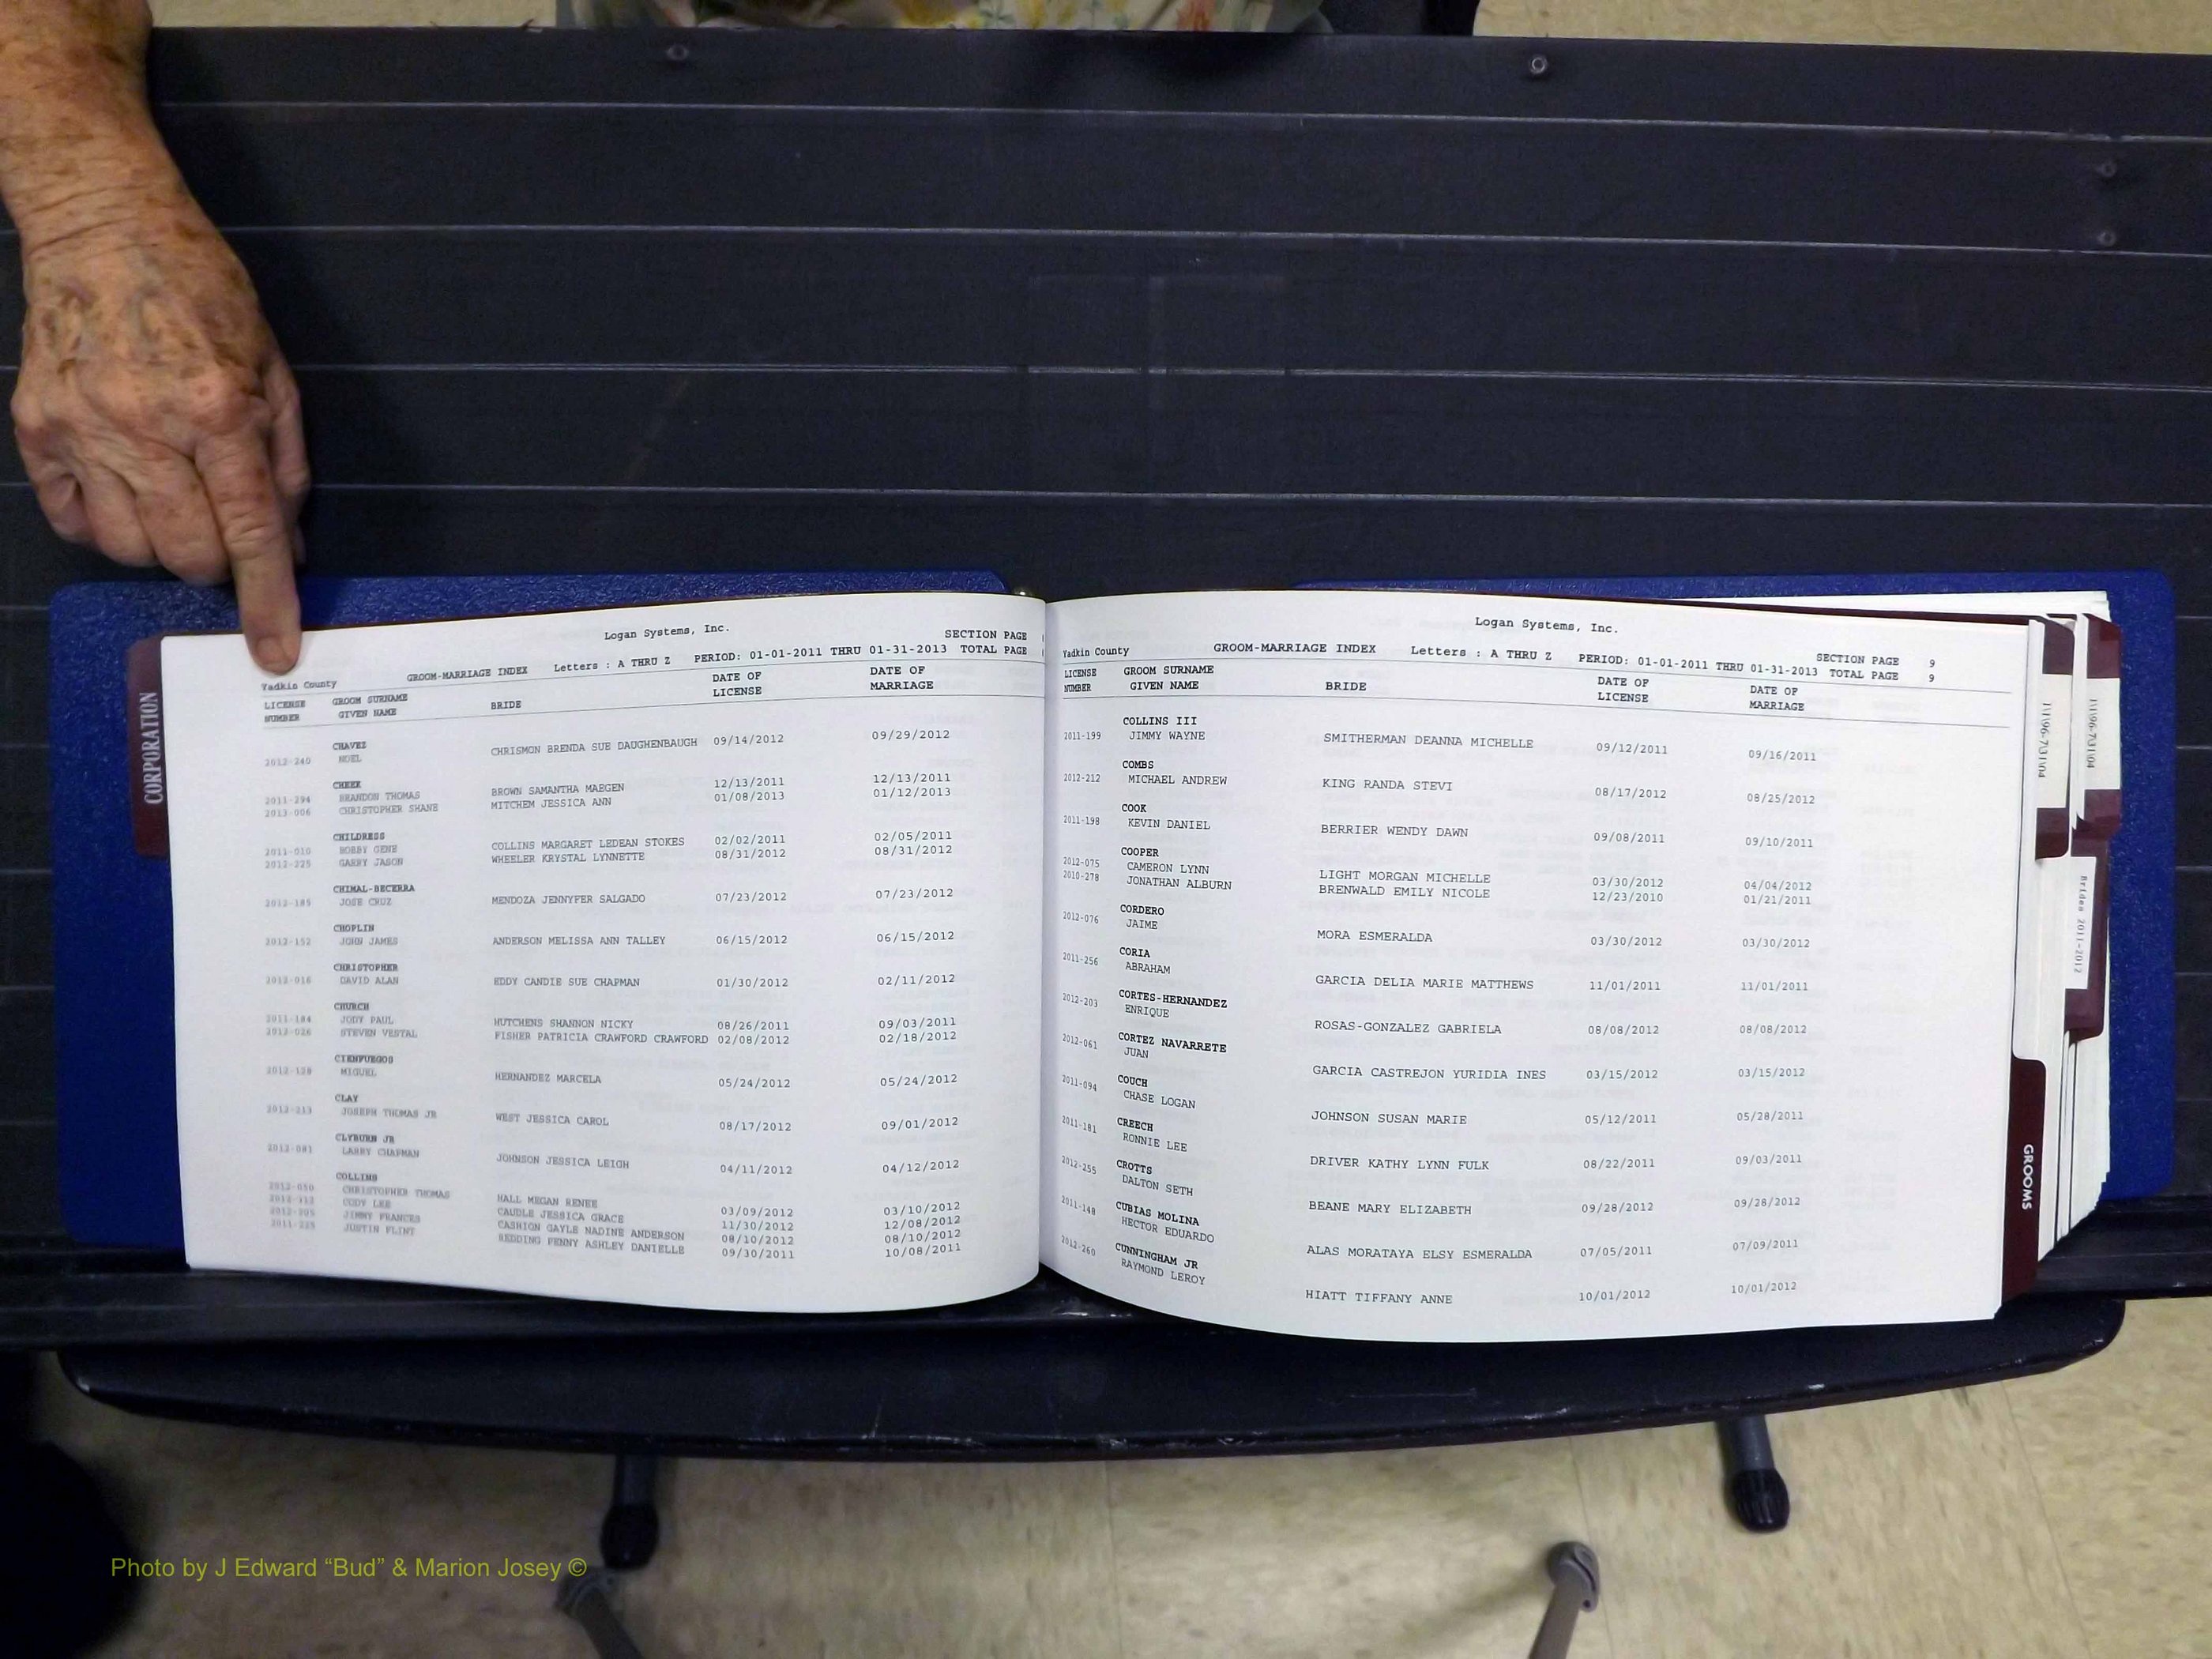 CORPORATION
Logan Systems, Inc.
SECTION PAGE
Yadkin County GROOM-MARRIAGE INDEX Letters : A THRU Z PERIOD: 01-01-2011 THRU 01-31-2013 TOTAL PAGE
LICENSE GROOM SURNAME DATE OF DATE OF
NUMBER GIVEN NAME BRIDE LICENSE MARRIAGE
CHAVEZ
2012-240 NOEL CHRISMON BRENDA SUE DAUGHENBAUGH 09/14/2012 09/29/2012
CHEEK
2011-294 BRANDON THOMAS BROWN SAMANTHA MAEGEN 12/13/2011 12/13/2011
2013-006 CHRISTOPHER SHANE MITCHEM JESSICA ANN 01/08/2013 01/12/2013
CHILDRESS
2011-010 BOBBY GENE COLLINS MARGARET LEDEAN STOKES 02/02/2011 02/05/2011
2012-225 GARRY JASON WHEELER KRYSTAL LYNNETTE 08/31/2012 08/31/2012
CHIMAL-BECERRA
2012-185 JOSE CRUZ MENDOZA JENNYFER SALGADO 07/23/2012 07/23/2012
CHOPLIN
2012-152 JOHN JAMES ANDERSON MELISSA ANN TALLEY 06/15/2012 06/15/2012
CHRISTOPHER
2012-016 DAVID ALAN EDDY CANDIE SUE CHAPMAN 01/30/2012 02/11/2012
CHURCH
2011-184 JODY PAUL HUTCHENS SHANNON NICKY 08/26/2011 09/03/2011
2012-026 STEVEN VESTAL FISHER PATRICIA CRAWFORD CRAWFORD 02/08/2012 02/18/2012
CIENFUEGOS
2012-128 MIGUEL HERNANDEZ MARCELA 05/24/2012 05/24/2012
CLAY
2012-213 JOSEPH THOMAS JR WEST JESSICA CAROL 08/17/2012 09/01/2012
CLYBURN JR
2012-081 LARRY CHAPMAN JOHNSON JESSICA LEIGH 04/11/2012 04/12/2012
COLLINS
2012-050 CHRISTOPHER THOMAS HALL MEGAN RENEE 03/09/2012 03/10/2012
CODY LEE CAUDLE JESSICA GRACE 11/30/2012 12/08/2012
JIMMY FRANCES CASHION GAYLE NADINE ANDERSON 08/10/2012 08/10/2012
2011-225 JUSTIN FLINT REDDING PENNY ASHLEY DANIELLE 09/30/2011 10/08/2011
Logan Systems, Inc.
SECTION PAGE 9
Yadkin County GROOM-MARRIAGE INDEX Letters : A THRU Z PERIOD: 01-01-2011 THRU 01-31-2013 TOTAL PAGE 9
LICENSE GROOM SURNAME DATE OF DATE OF
NUMBER GIVEN NAME BRIDE LICENSE MARRIAGE
COLLINS III
2011-199 JIMMY WAYNE SMITHERMAN DEANNA MICHELLE 09/12/2011 09/16/2011
COMBS
2012-212 MICHAEL ANDREW KING RANDA STEVI 08/17/2012 08/25/2012
COOK
2011-198 KEVIN DANIEL BERRIER WENDY DAWN 09/08/2011 09/10/2011
COOPER
2012-075 CAMERON LYNN LIGHT MORGAN MICHELLE 03/30/2012 04/04/2012
2010-278 JONATHAN ALBURN BRENWALD EMILY NICOLE 12/23/2010 01/21/2011
CORDERO
2012-076 JAIME MORA ESMERALDA 03/30/2012 03/30/2012
CORIA
2011-256 ABRAHAM GARCIA DELIA MARIE MATTHEWS 11/01/2011 11/01/2011
CORTES-HERNANDEZ
2012-203 ENRIQUE ROSAS-GONZALEZ GABRIELA 08/08/2012 08/08/2012
CORTEZ NAVARRETE
2012-061 JUAN GARCIA CASTREJON YURIDIA INES 03/15/2012 03/15/2012
COUCH
2011-094 CHASE LOGAN JOHNSON SUSAN MARIE 05/12/2011 05/28/2011
CREECH
2011-181 RONNIE LEE DRIVER KATHY LYNN FULK 08/22/2011 09/03/2011
CROTTS
2012-255 DALTON SETH BEANE MARY ELIZABETH 09/28/2012 09/28/2012
CUBIAS MOLINA
2011-148 HECTOR EDUARDO ALAS MORATAYA ELSY ESMERALDA 07/05/2011 07/09/2011
CUNNINGHAM JR
2012-260 RAYMOND LEROY HIATT TIFFANY ANNE 10/01/2012 10/01/2012
1/1/96-7/31/04
1/1/96-7/31/04
Brides 2011-2012
GROOMS
Photo by J Edward “Bud” & Marion Josey ©